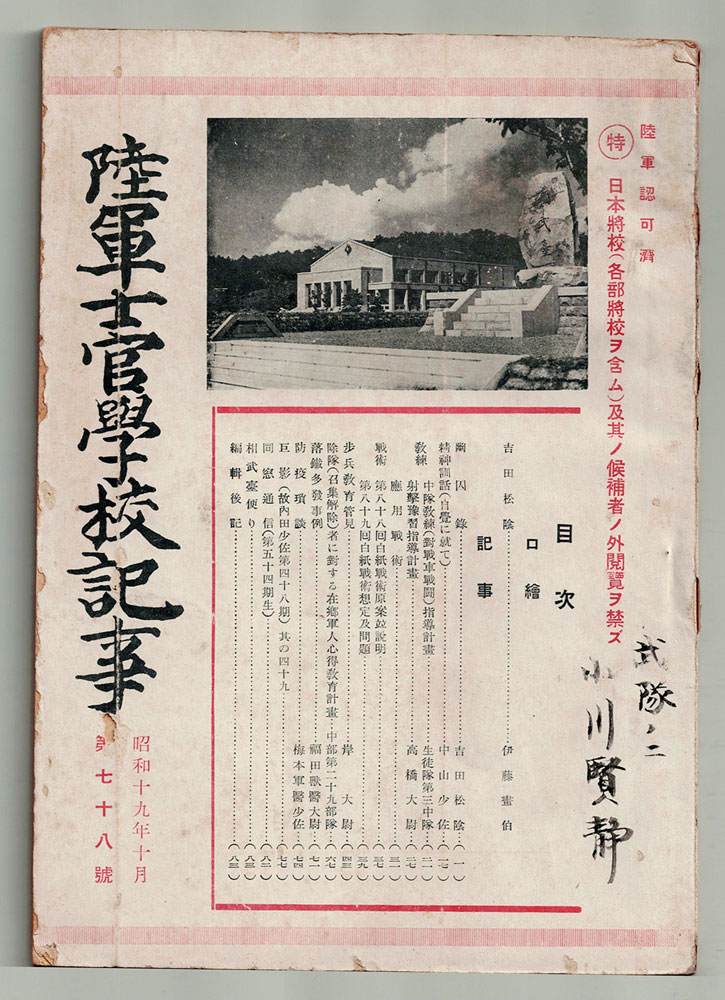 陸軍認可濟
㊕ 日本將校(各部將校ヲ含ム)及其ノ候補者ノ外閲覽ヲ禁ズ
弐隊ノ二
小川賢静
相武臺
目次
口繪
吉田松陰……伊藤畫伯
記事
幽囚錄……吉田松陰…(一)
精神訓話(自覺に就て)……中山少佐…(一七)
敎練 中隊敎練(對戰車戰鬪)指導計畫……生徒隊第三中隊…(二一)
射擊豫習指導計畫……高橋大尉…(二七)
應用戰術……(三一)
戰術 第八十八回白紙戰術原案竝說明……(三七)
第八十九回白紙戰術想定及問題……(三九)
步兵敎育管見……岸大尉…(四三)
除隊(召集解除)者に對する在鄕軍人心得敎育計畫…中部第二十九部隊…(六七)
落鐵多發事例……福田獸醫大尉…(七一)
防疫瑣談……梅本軍醫少佐…(七四)
巨影(故內田少佐第四十八期)其の四十九……(七七)
同窓通信(第五十四期生)……(八二)
相武臺便り……(八三)
編輯後記……(八三)
陸軍士官學校記事
昭和十九年十月
第七十八號